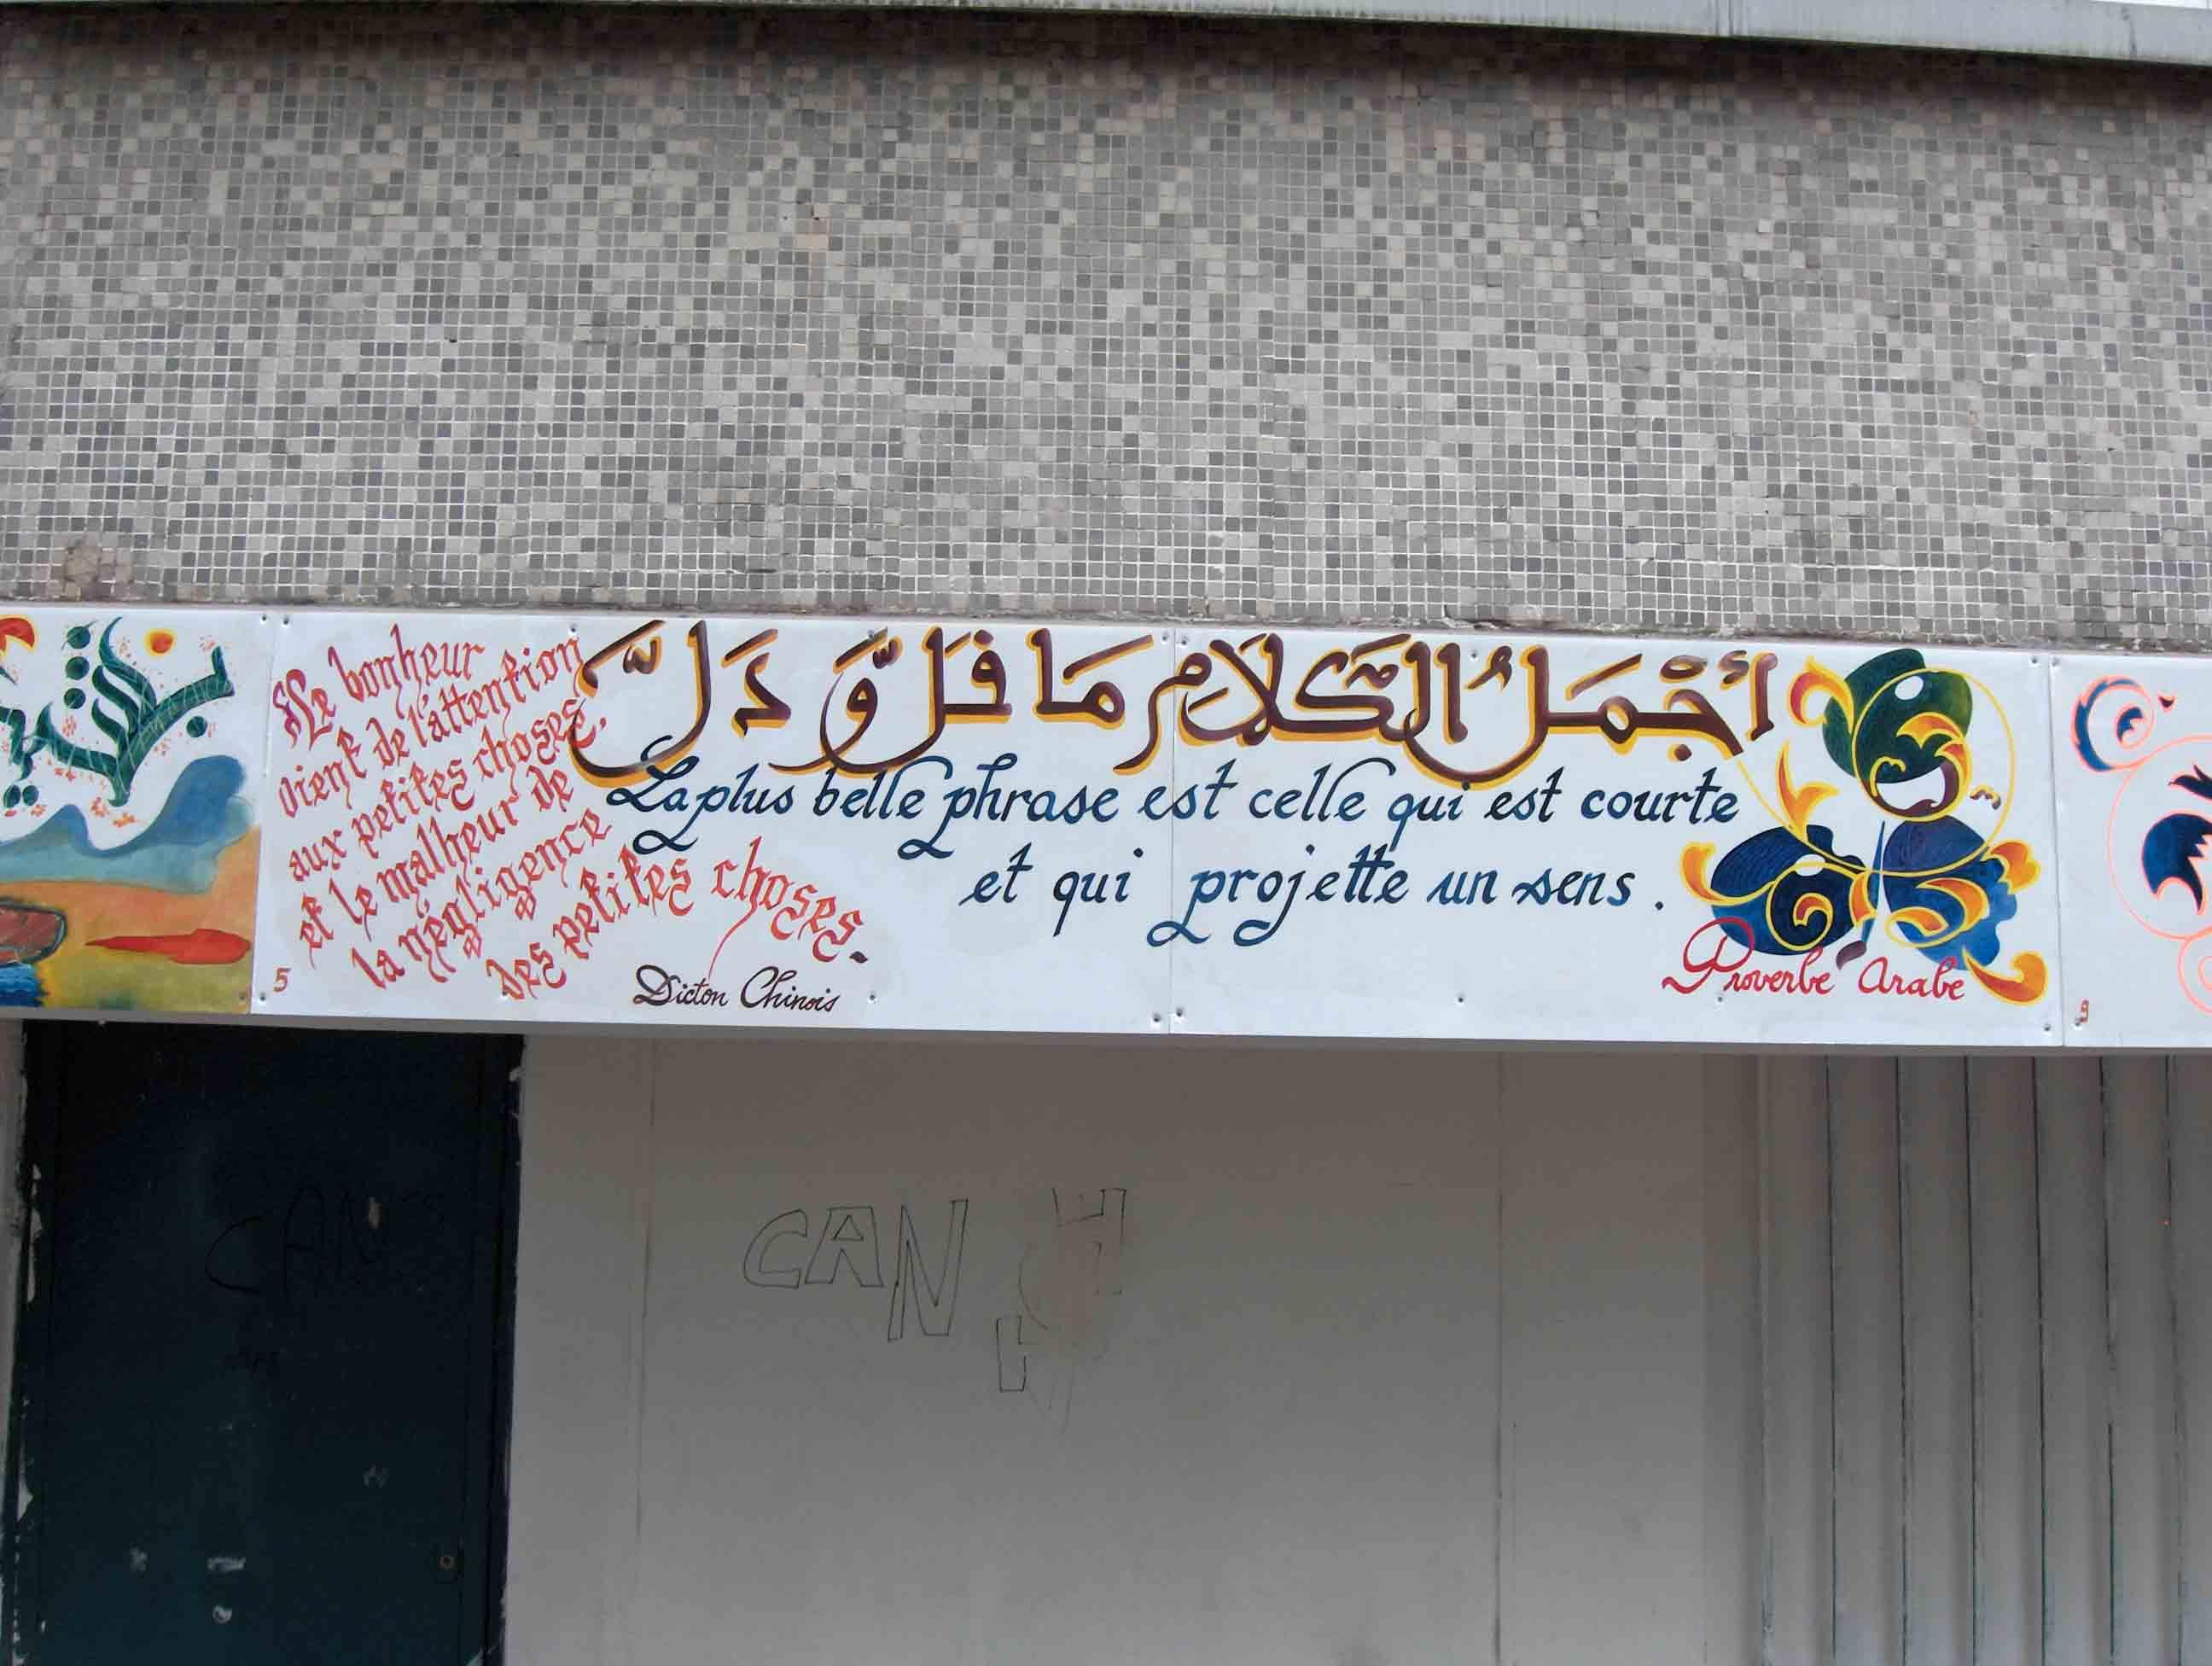 Le bonheur
vient de l'attention
aux petites choses,
et le malheur de
la négligence
des petites choses.
Dicton Chinois
5
أَجْمَلُ الكَلاَمِ مَا قَلَّ وَّ دَلَّ
La plus belle phrase est celle qui est courte
et qui projette un sens.
Proverbe Arabe
9
CAN
CAN